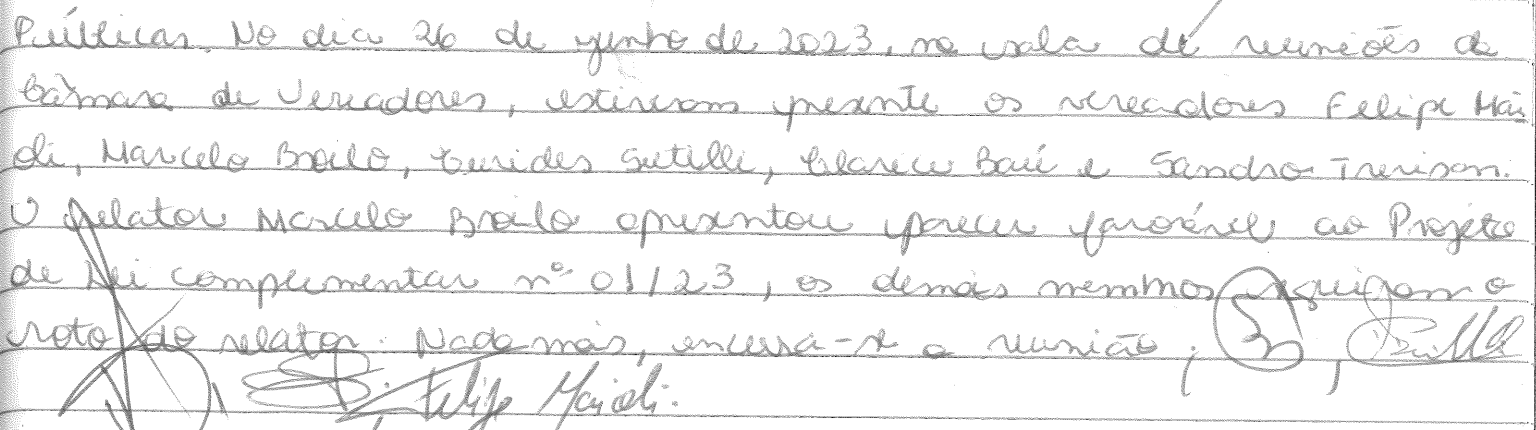 Públicas. No dia 26 de junho de 2023, na sala de reuniões da
Câmara de Vereadores, estiveram presente os vereadores Felipe Maio
li, Marcelo Broilo, Eurides Sutilli, Clarice Baú e Sandro Trevisan.
O relator Marcelo Broilo apresentou parecer favorável ao Projeto
de Lei complementar nº 01/23, os demais membros seguiram o
voto do relator. Nada mais, encerra-se a reunião;
Felipe Maioli.